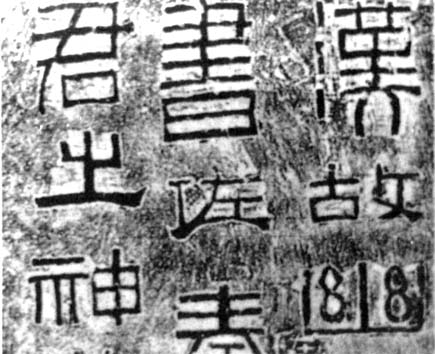 漢故幽
書佐秦
君之神